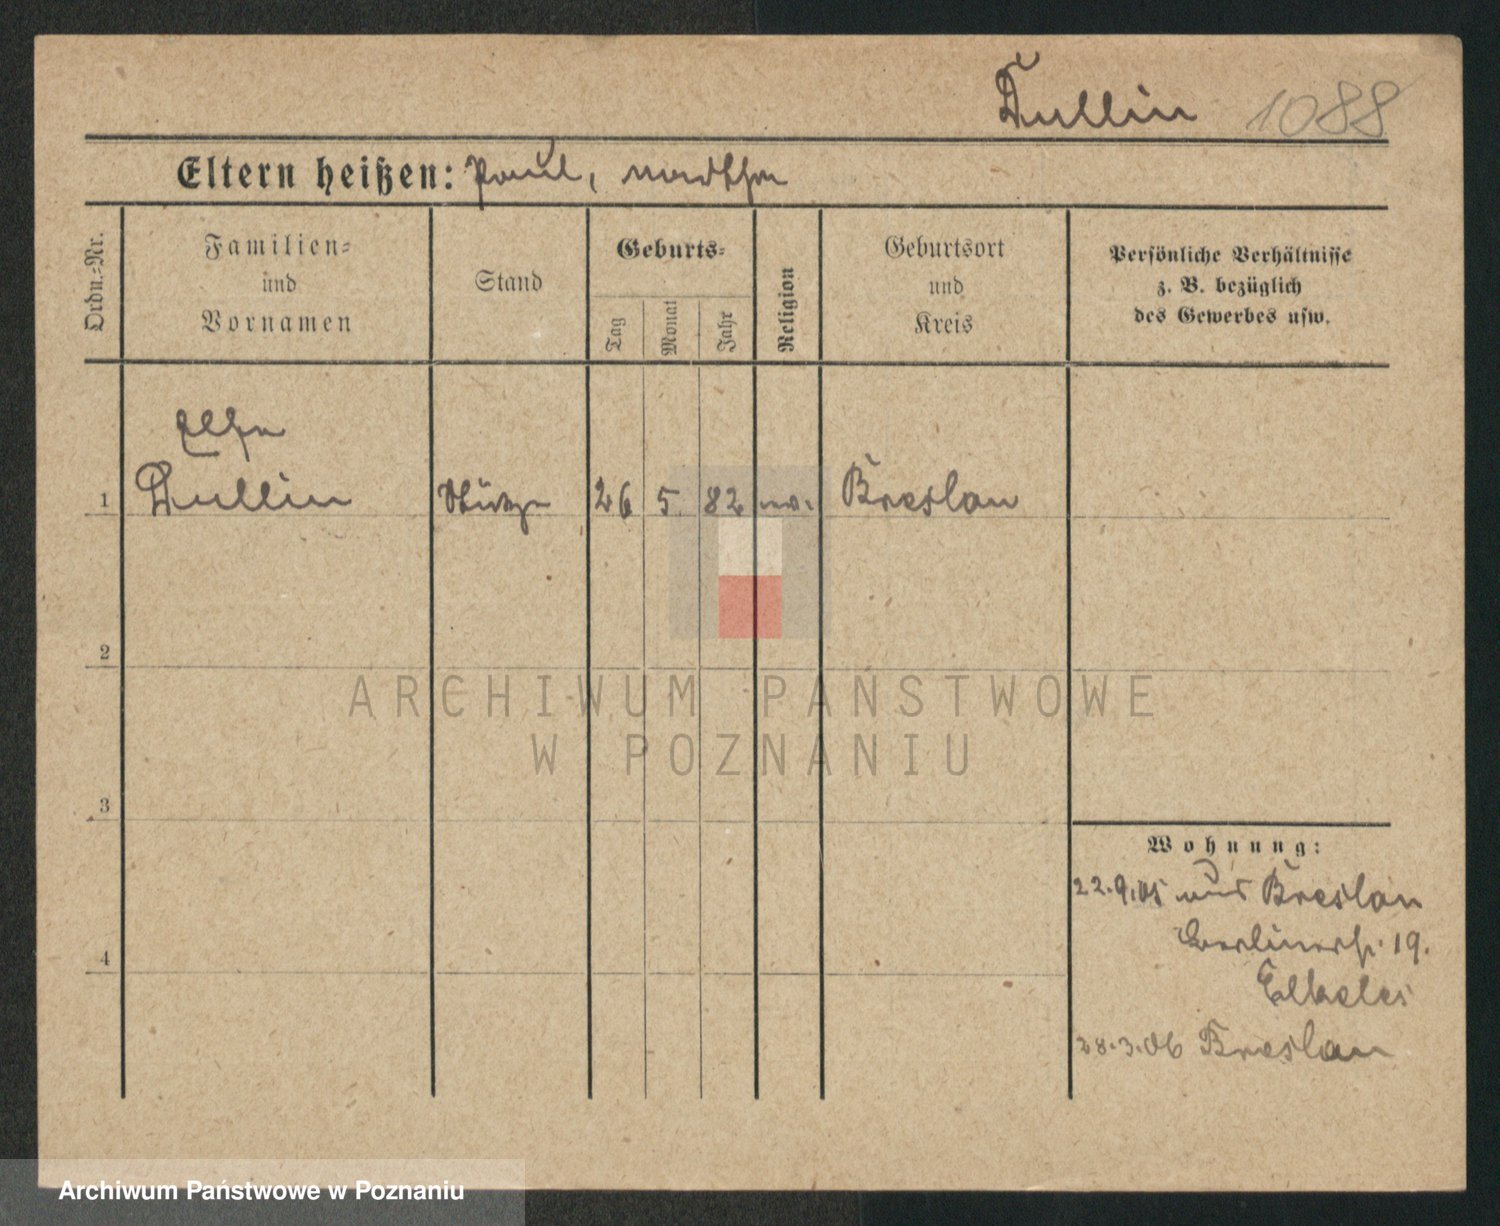 Dullin 1088
Eltern heißen: Paul, Martha
Ordn.=Nr.
Familien=
und
Vornamen
Stand
Geburts=
Tag
Monat
Jahr
Religion
Geburtsort
und
Kreis
Persönliche Verhältnisse
z. B. bezüglich
des Gewerbes usw.
Elsa
1 Dullin Stütze 26 5 82 ev. Breslau
2
3
4
ARCHIWUM PAŃSTWOWE
W POZNANIU
Wohnung:
22.9.05 aus Breslau
Berlinerstr. 19.
28.3.06 Breslau
Archiwum Państwowe w Poznaniu